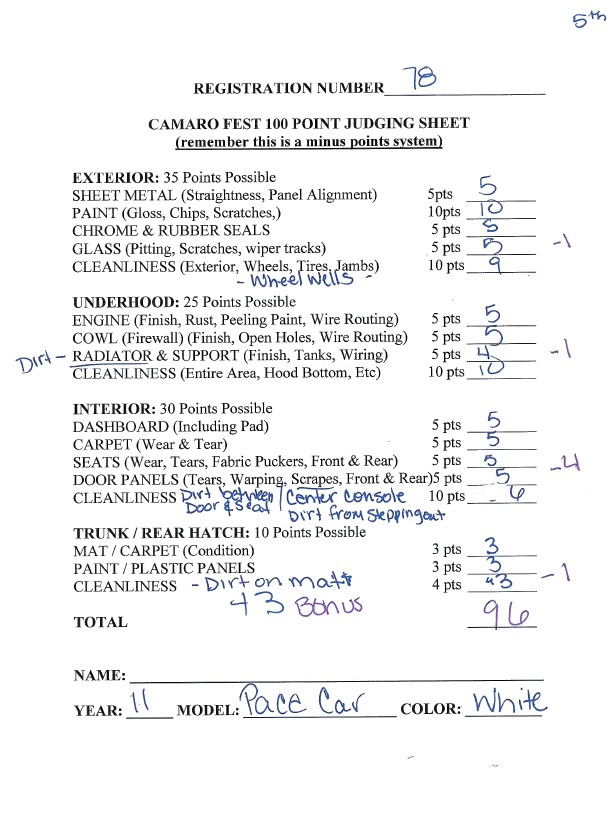 5th
REGISTRATION NUMBER 78
CAMARO FEST 100 POINT JUDGING SHEET
(remember this is a minus points system)
EXTERIOR: 35 Points Possible
SHEET METAL (Straightness, Panel Alignment) 5pts 5
PAINT (Gloss, Chips, Scratches,) 10pts 10
CHROME & RUBBER SEALS 5 pts 5
GLASS (Pitting, Scratches, wiper tracks) 5 pts 5 -1
CLEANLINESS (Exterior, Wheels, Tires, Jambs) 10 pts 9
- Wheel Wells -
UNDERHOOD: 25 Points Possible
ENGINE (Finish, Rust, Peeling Paint, Wire Routing) 5 pts 5
COWL (Firewall) (Finish, Open Holes, Wire Routing) 5 pts 5
Dirt - RADIATOR & SUPPORT (Finish, Tanks, Wiring) 5 pts 4 -1
CLEANLINESS (Entire Area, Hood Bottom, Etc) 10 pts 10
INTERIOR: 30 Points Possible
DASHBOARD (Including Pad) 5 pts 5
CARPET (Wear & Tear) 5 pts 5
SEATS (Wear, Tears, Fabric Puckers, Front & Rear) 5 pts 5 -4
DOOR PANELS (Tears, Warping, Scrapes, Front & Rear)5 pts 5
CLEANLINESS Dirt between / Center console 10 pts 6
Door & Seat Dirt from stepping out
TRUNK / REAR HATCH: 10 Points Possible
MAT / CARPET (Condition) 3 pts 3
PAINT / PLASTIC PANELS 3 pts 3
CLEANLINESS - Dirt on mat 4 pts 3 -1
+3 Bonus
TOTAL 96
NAME:
YEAR: 11 MODEL: Pace Car COLOR: White